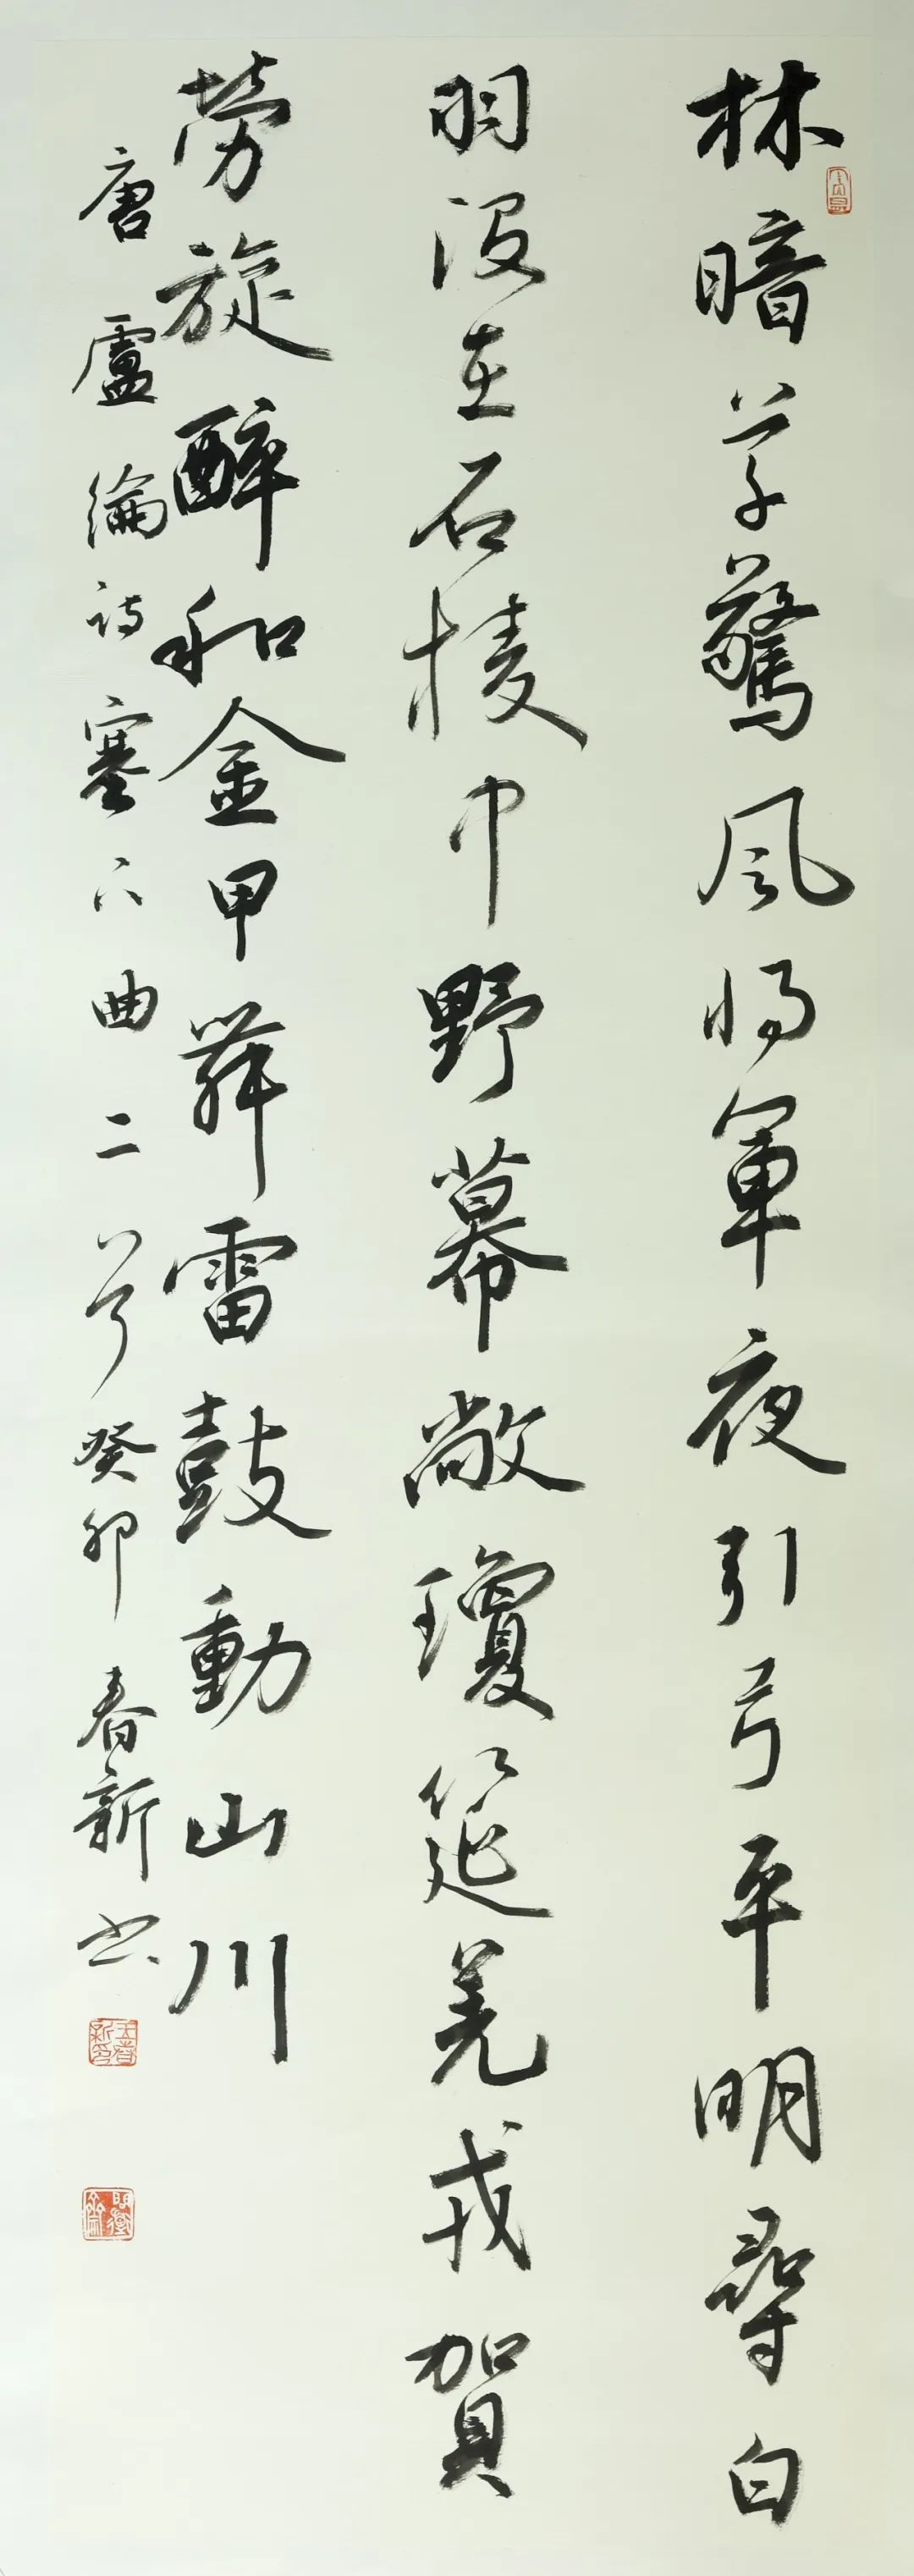 林暗草驚風將軍夜引弓平明尋白
羽沒在石棱中野幕敞瓊筵羌戎賀
勞旋醉和金甲舞雷鼓動山川
唐盧綸詩塞下曲二首癸卯春新书